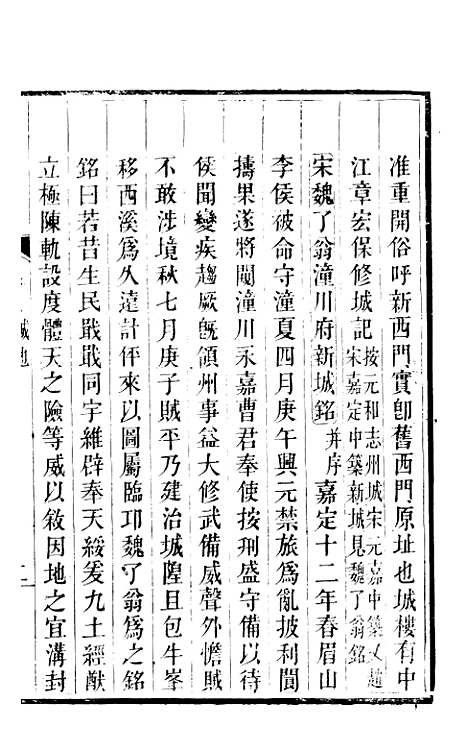 准重開俗呼新西門實卽舊西門原址也城樓有中
江章宏保修城記按元和志州城宋元嘉中築又趙
宋嘉定中築新城見魏了翁銘
宋魏了翁潼川府新城銘并序嘉定十二年春眉山
李侯被命守潼夏四月庚午興元禁旅爲亂披利閬
擣果遂將闖潼川永嘉曹君奉使按刑盛守備以待
侯聞變疾趨厥旣領州事益大修武備威聲外憺賊
不敢涉境秋七月庚子賊平乃建治城隍且包牛峯
移西溪爲久遠計伻來以圖屬臨邛魏了翁爲之銘
銘曰若昔生民戢戢同宇維辟奉天綏爰九土經猷
立極陳軌設度體天之險等威以敘因地之宜溝封
城池
二